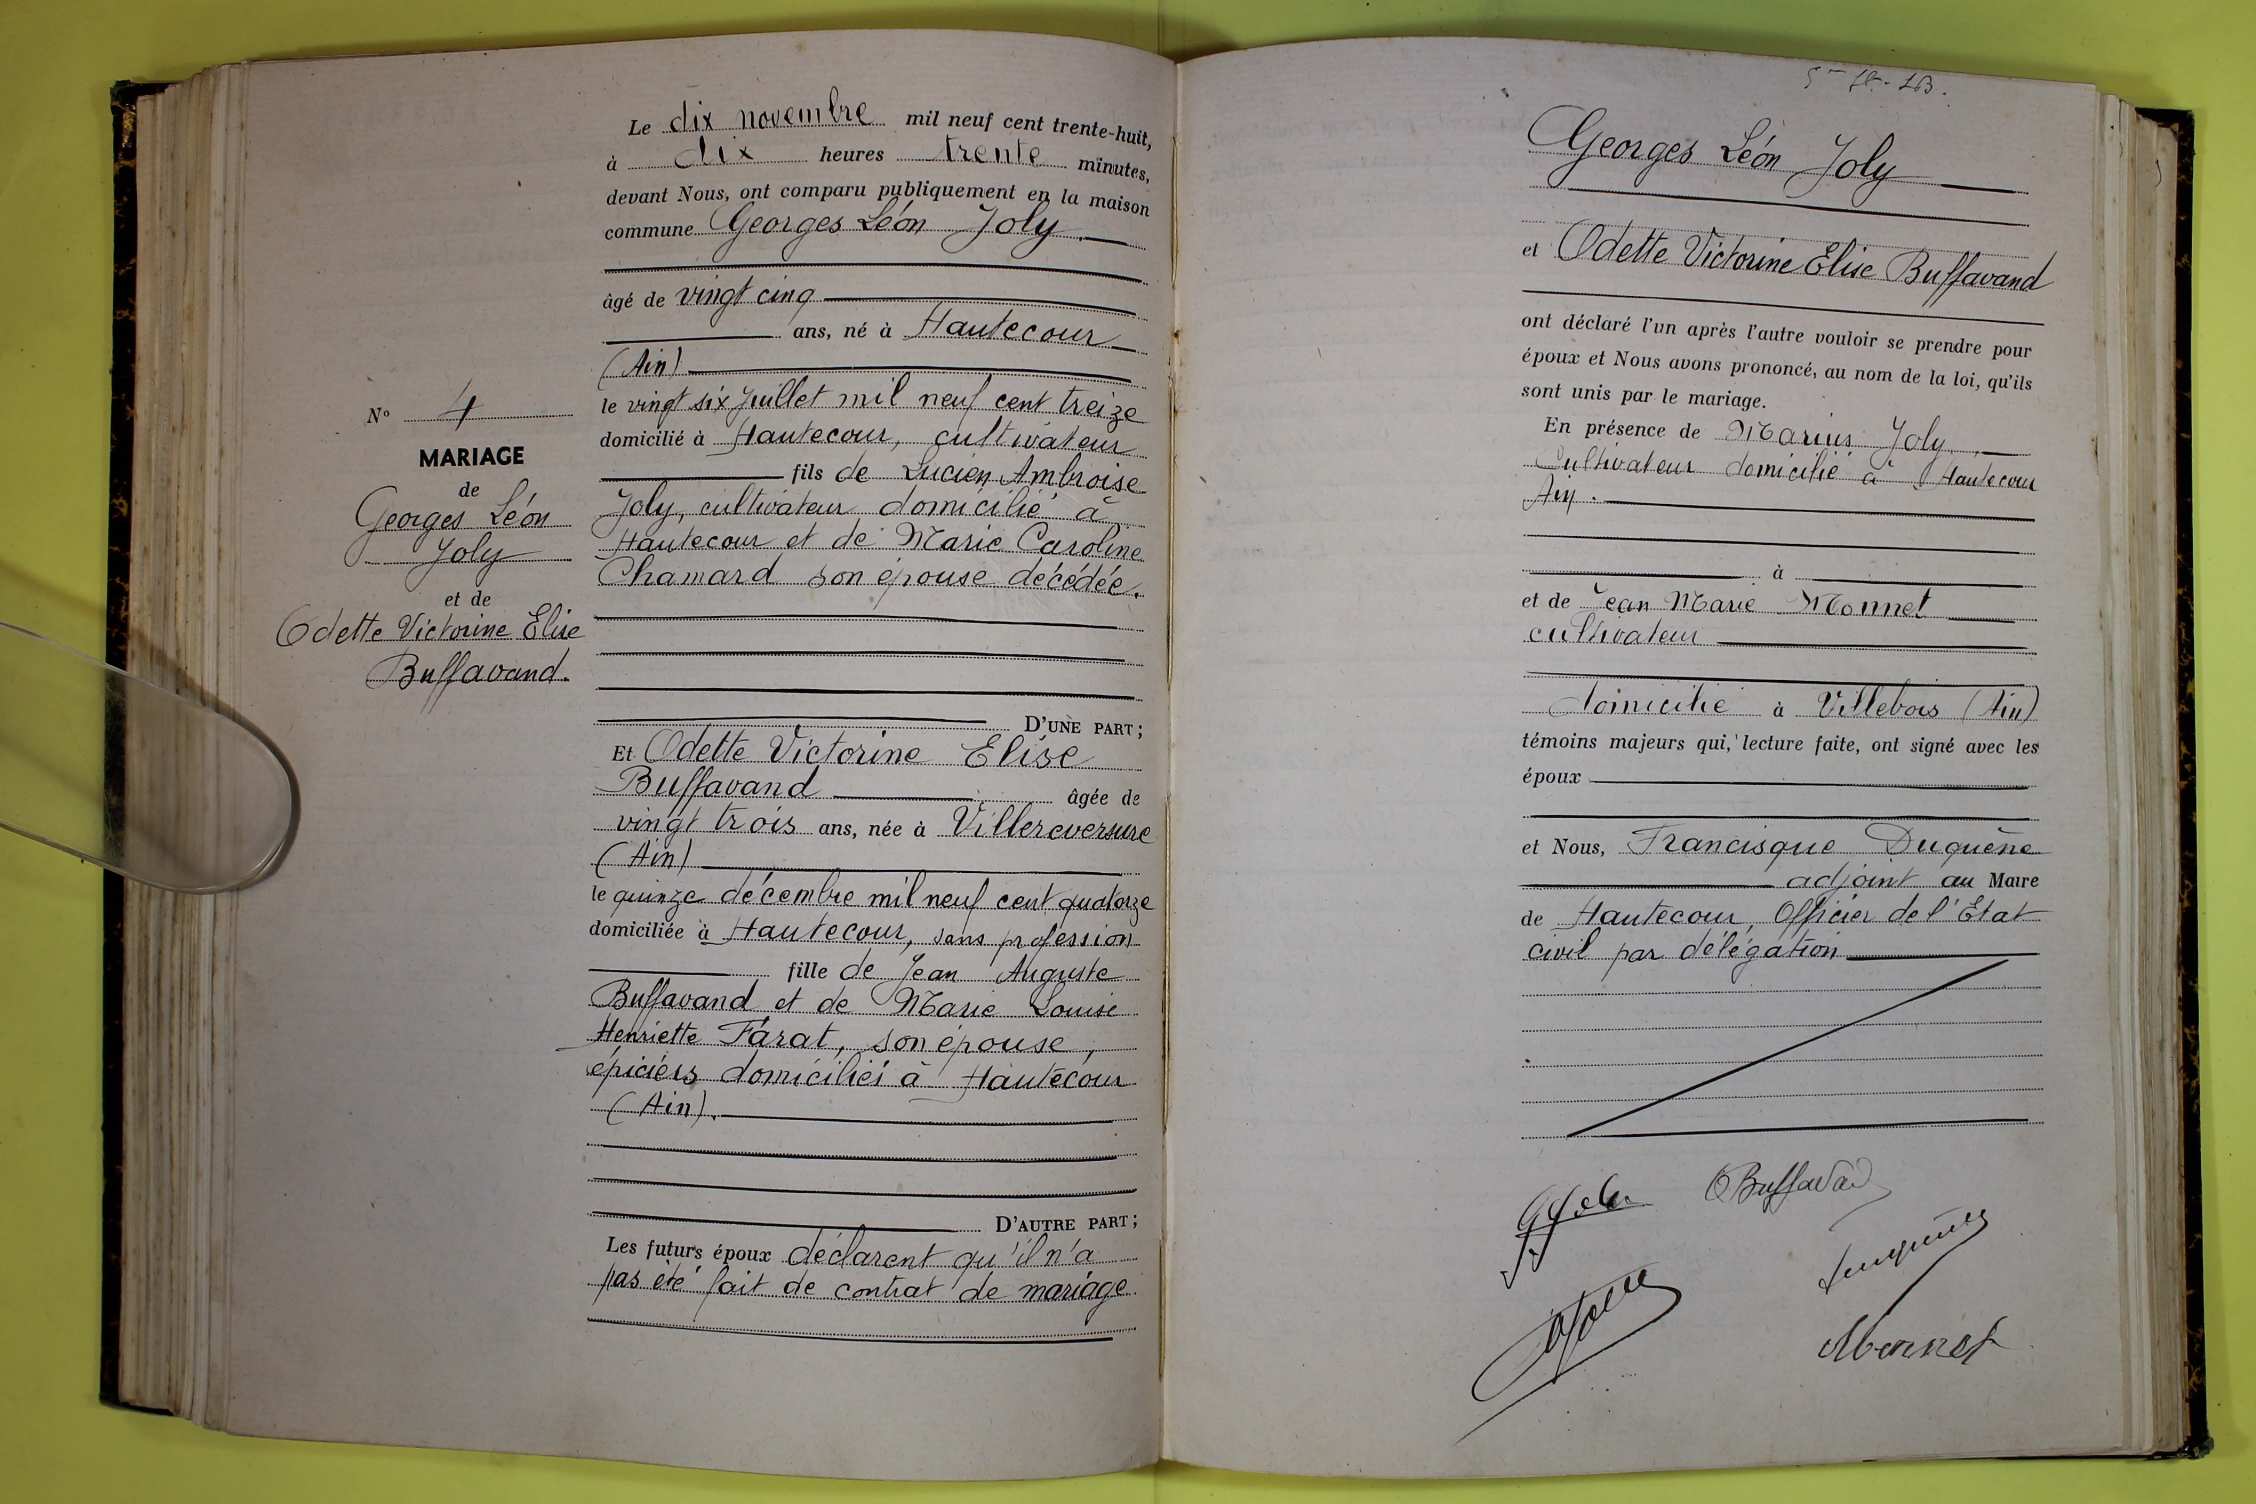 N° 4
MARIAGE
de
Georges Léon
Joly
et de
Odette Victorine Elise
Buffavand.
Le dix novembre mil neuf cent trente-huit,
à dix heures trente minutes,
devant Nous, ont comparu publiquement en la maison
commune Georges Léon Joly.
âgé de vingt cinq
ans, né à Hautecour
(Ain)
le vingt six Juillet mil neuf cent treize
domicilié à Hautecour, cultivateur
fils de Lucien Ambroise
Joly, cultivateur domicilié à
Hautecour et de Marie Caroline
Chamard son épouse décédée.
D'UNE PART;
Et Odette Victorine Elise
Buffavand âgée de
vingt trois ans, née à Villereversure
(Ain)
le quinze décembre mil neuf cent quatorze
domiciliée à Hautecour, sans profession
fille de Jean Auguste
Buffavand et de Marie Louise
Henriette Farat, son épouse,
épiciers domiciliés à Hautecour
(Ain).
D'AUTRE PART;
Les futurs époux déclarent qu'il n'a
pas été fait de contrat de mariage.
Georges Léon Joly
et Odette Victorine Elise Buffavand
ont déclaré l'un après l'autre vouloir se prendre pour
époux et Nous avons prononcé, au nom de la loi, qu'ils
sont unis par le mariage.
En présence de Marius Joly,
Cultivateur domicilié à Hautecour
Ain.
à
et de Jean Marie Monnet
cultivateur
domicilié à Villebois (Ain)
témoins majeurs qui, lecture faite, ont signé avec les
époux
et Nous, Francisque Duquêne
adjoint au Maire
de Hautecour, Officier de l'Etat
civil par délégation
OBuffavand
Monnet